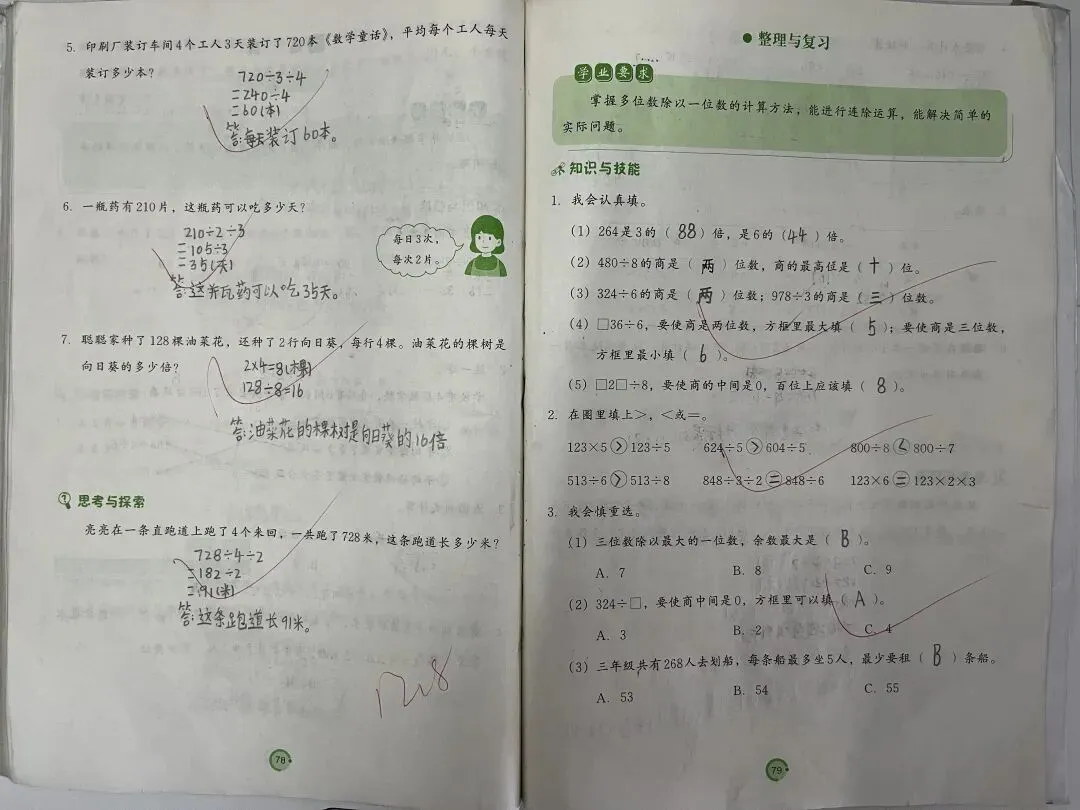 5. 印刷厂装订车间4个工人3天装订了720本《数学童话》，平均每个工人每天
装订多少本？
720÷3÷4
=240÷4
=60(本)
答:每天装订60本。
6. 一瓶药有210片，这瓶药可以吃多少天？
每日3次，
每次2片。
210÷2÷3
=105÷3
=35(天)
答:这并瓦药可以吃35天。
7. 聪聪家种了128棵油菜花，还种了2行向日葵，每行4棵。油菜花的棵树是
向日葵的多少倍？
2×4=8(棵)
128÷8=16
答:油菜花的棵树是向日葵的16倍
思考与探索
亮亮在一条直跑道上跑了4个来回，一共跑了728米，这条跑道长多少米？
728÷4÷2
=182÷2
=91(米)
答:这条跑道长91米。
78
整理与复习
学业要求
掌握多位数除以一位数的计算方法，能进行连除运算，能解决简单的
实际问题。
知识与技能
1. 我会认真填。
(1) 264是3的（88）倍，是6的（44）倍。
(2) 480÷8的商是（两）位数，商的最高位是（十）位。
(3) 324÷6的商是（两）位数；978÷3的商是（三）位数。
(4) □36÷6，要使商是两位数，方框里最大填（5）；要使商是三位数，
方框里最小填（6）。
(5) □2□÷8，要使商的中间是0，百位上应该填（8）。
2. 在图里填上>，<或=。
123×5>123÷5 624÷5>604÷5 800÷8<800÷7
513÷6>513÷8 848÷3÷2=848÷6 123×6=123×2×3
3. 我会慎重选。
(1) 三位数除以最大的一位数，余数最大是（B）。
A. 7 B. 8 C. 9
(2) 324÷□，要使商中间是0，方框里可以填（A）。
A. 3 B. 2 C. 4
(3) 三年级共有268人去划船，每条船最多坐5人，最少要租（B）条船。
A. 53 B. 54 C. 55
79